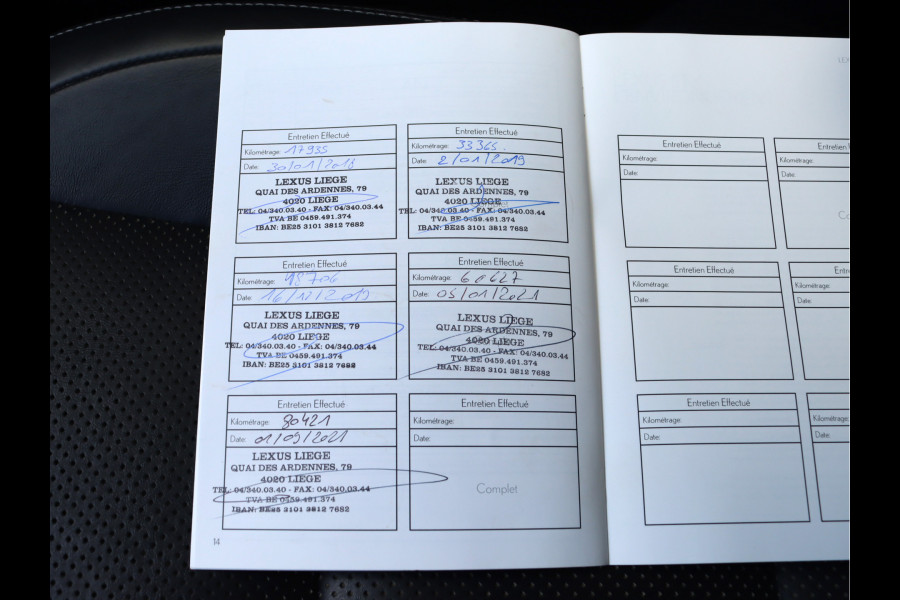 Entretien Effectué
Kilométrage: 17935
Date: 30/01/2018
LEXUS LIEGE
QUAI DES ARDENNES, 79
4020 LIEGE
TEL: 04/340.03.40 - FAX: 04/340.03.44
TVA BE 0459.491.374
IBAN: BE25 3101 3812 7682
Entretien Effectué
Kilométrage: 33365.
Date: 2/01/2019
LEXUS LIEGE
QUAI DES ARDENNES, 79
4020 LIEGE
TEL: 04/340.03.40 - FAX: 04/340.03.44
TVA BE 0459.491.374
IBAN: BE25 3101 3812 7682
Entretien Effectué
Kilométrage: 48706
Date: 16/12/2019
LEXUS LIEGE
QUAI DES ARDENNES, 79
4020 LIEGE
TEL: 04/340.03.40 - FAX: 04/340.03.44
TVA BE 0459.491.374
IBAN: BE25 3101 3812 7682
Entretien Effectué
Kilométrage:
Date: 05/01/2021
LEXUS LIEGE
QUAI DES ARDENNES, 79
4020 LIEGE
TEL: 04/340.03.40 - FAX: 04/340.03.44
TVA BE 0459.491.374
IBAN: BE25 3101 3812 7682
Entretien Effectué
Kilométrage: 80421
Date: 01/09/2021
LEXUS LIEGE
QUAI DES ARDENNES, 79
4020 LIEGE
TEL: 04/340.03.40 - FAX: 04/340.03.44
TVA BE 0459.491.374
IBAN: BE25 3101 3812 7682
Entretien Effectué
Kilométrage:
Date:
Complet
14
Entretien Effectué
Kilométrage:
Date:
Entretien
Kilométrage:
Date:
Co
Entretien Effectué
Kilométrage:
Date:
Entre
Kilométrage:
Date:
Entretien Effectué
Kilométrage:
Date:
Kilométrage:
Date: